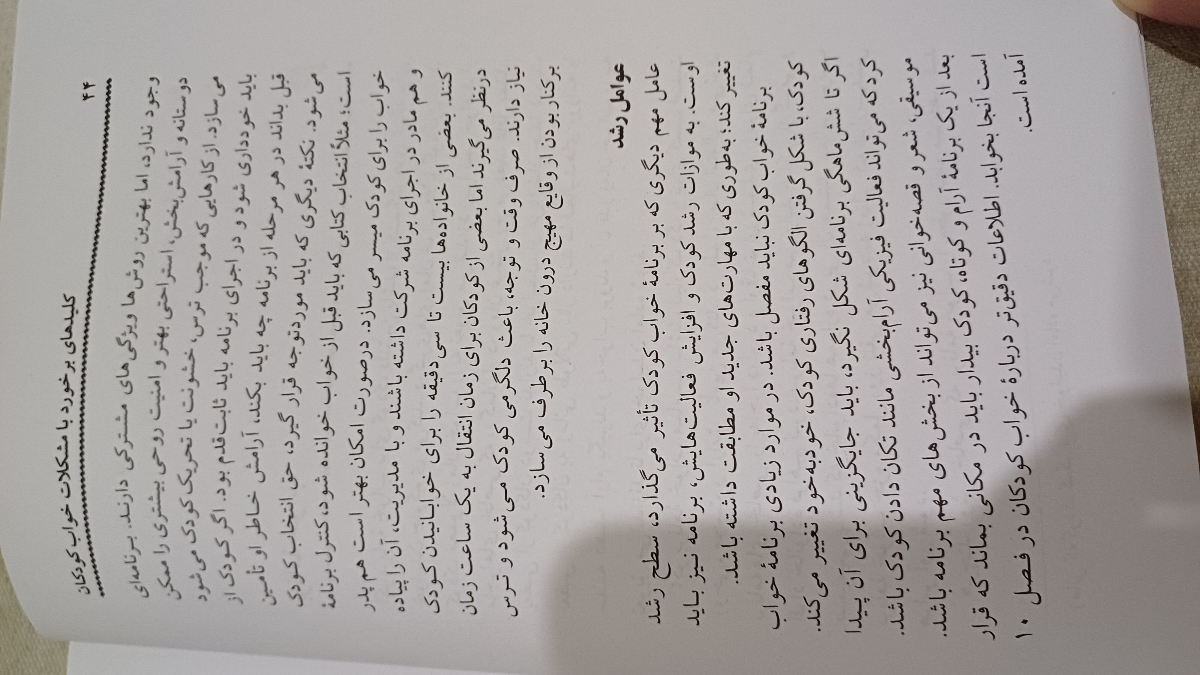 ۴۴
کلیدهای برخورد با مشکلات خواب کودکان
وجود ندارد، اما بهترین روش‌ها ویژگی‌های مشترکی دارنـد. بـرنامه‌ای
دوستانه و آرامش‌بخش، استراحتی بهتر و امنیت روحی بیشتری را ممکن
می‌سازد. از کارهایی که موجب ترس، خشونت یا تحریک کودک می‌شود
باید خودداری شود و در اجرای برنامه باید ثابت‌قدم بود. اگر کـودک از
قبل بداند در هر مرحله از برنامه چه باید بکند، آرامش خاطر او تامـین
می‌شود. نکتهٔ دیگری که باید موردتوجه قرار گیرد، حق انتخاب کودک
است؛ مثلاً انتخاب کتابی که باید قبل از خواب خوانده شود، کنترل برنامهٔ
خواب را برای کودک میسر می‌سازد. درصورت امکان بهتر است هم پدر
و هم مادر در اجرای برنامه شرکت داشته باشند و با مدیریت، آن را پیاده
کنند. بعضی از خانواده‌ها بیست تا سی دقیقه را برای خوابـانیدن کـودک
درنظر می‌گیرند اما بعضی از کودکان برای زمان انتقال به یک ساعت زمان
نیاز دارند. صرف وقت و توجه، باعث دلگرمی کودک مـی‌شود و تـرس
برکنار بودن از وقایع مهیج درون خانه را برطرف می‌سازد.
عوامل رشد
عامل مهم دیگری که بر برنامهٔ خواب کودک تأثیر می‌گذارد، سطح رشد
اوست. به موازات رشد کودک و افزایش فعالیت‌هایش، برنامه نـیز بـاید
تغییر کند؛ به‌طوری که با مهارت‌های جدید او مطابقت داشته باشد.
برنامهٔ خواب کودک نباید مفصل باشد. در موارد زیادی برنامهٔ خواب
کودک، با شکل گرفتن الگوهای رفتاری کودک، خودبه‌خود تغییر می‌کند.
اگر تا شش‌ماهگی برنامه‌ای شکل نگیرد، باید جایگزینی برای آن پـیدا
کرد که می‌تواند فعالیت فیزیکی آرام‌بخشی مانند تکان دادن کودک باشد.
موسیقی، شعر و قصه‌خوانی نیز می‌تواند از بخش‌های مهم برنامه باشد.
بعد از یک برنامهٔ آرام و کوتاه، کودک بیدار باید در مکانی بماند که قرار
است آنجا بخوابد. اطلاعات دقیق‌تر دربارهٔ خواب کودکان در فـصل ۱۰
آمده است.